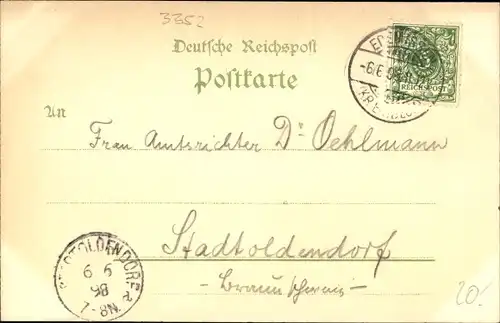 3352
Deutsche Reichspost
Postkarte
REICHSPOST
An
Frau Amtsrichter Dr Oehlmann
Stadtoldendorf
Braunschweig
STADTOLDENDORF
6 6
98
7-8N.
20.-